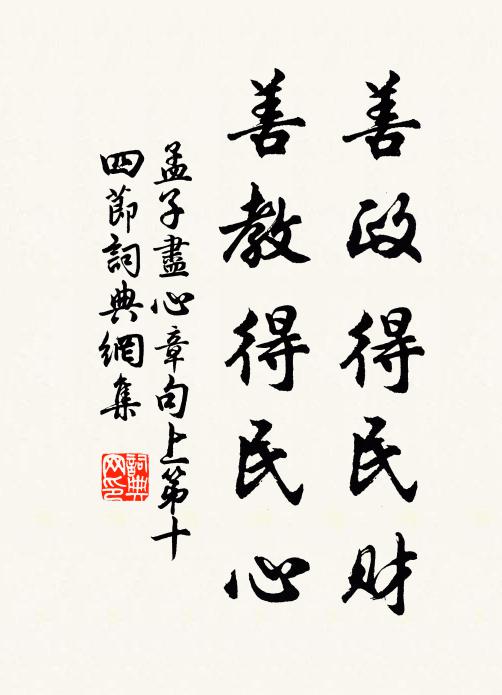 善政得民財
善教得民心
孟子盡心章句上第十
四節詞典網集
詞典
网印